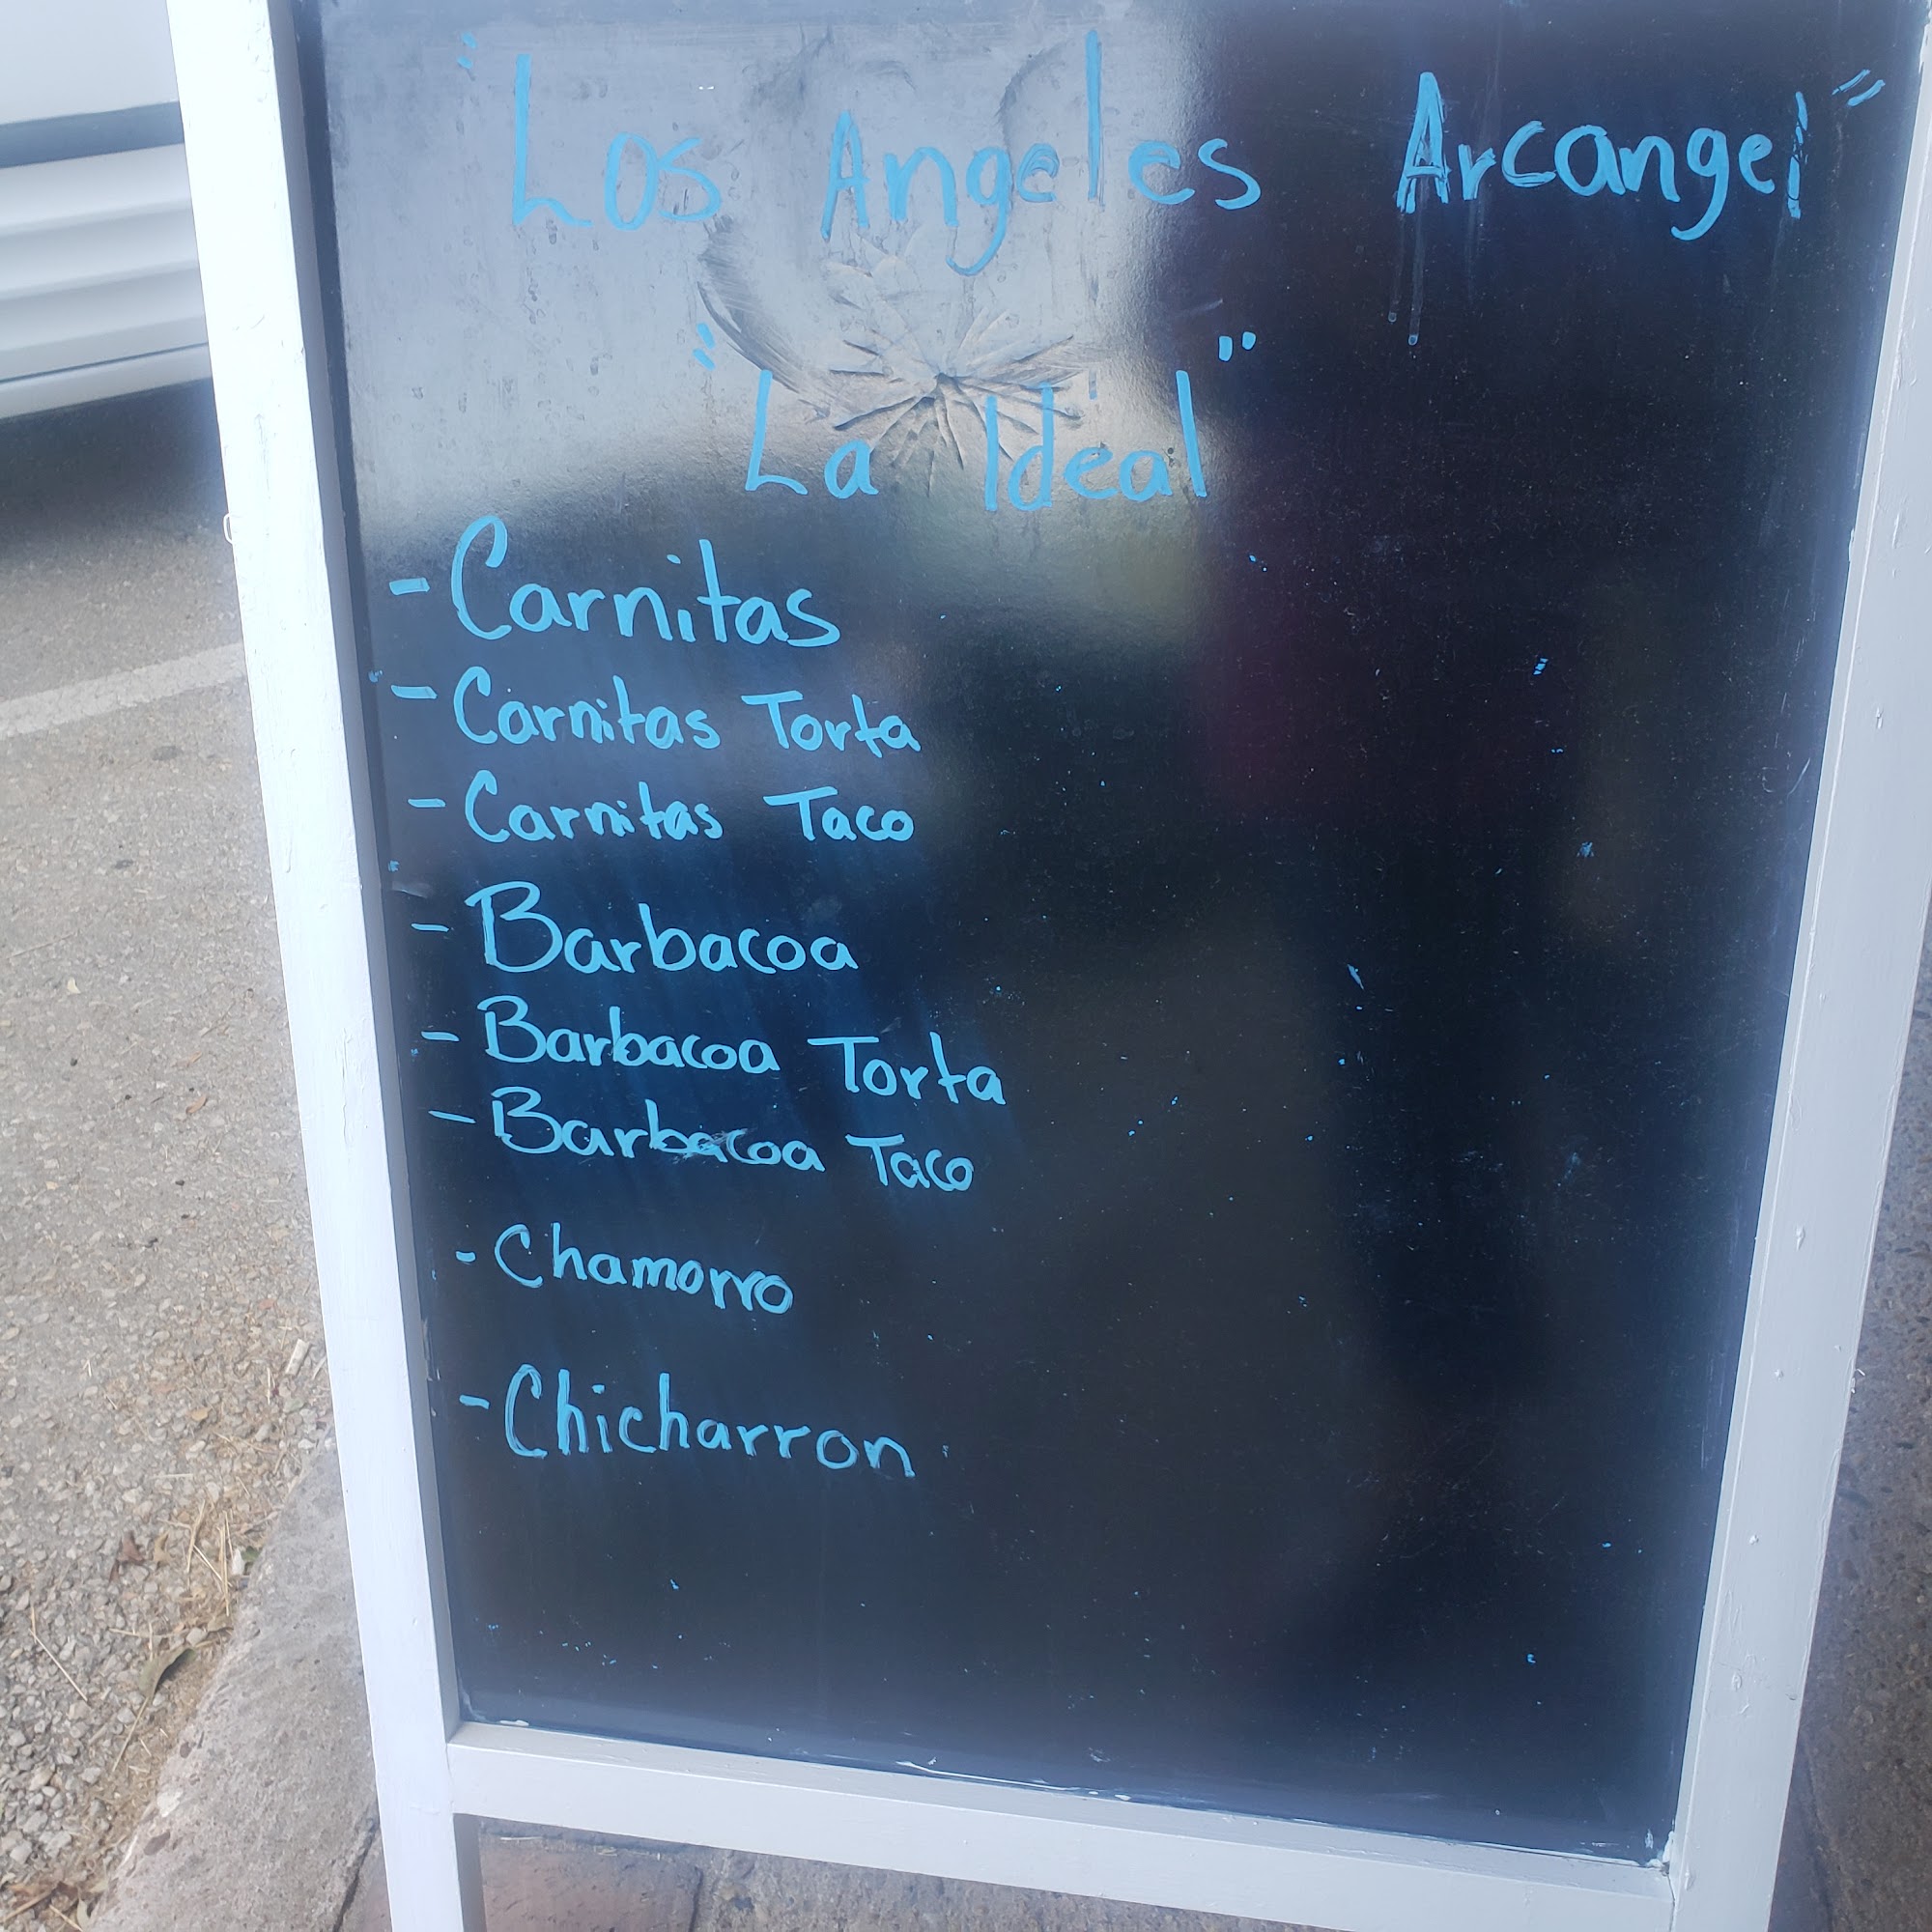 "Los Angeles Arcangel"
"La Ideal"
- Carnitas
- Carnitas Torta
- Carnitas Taco
- Barbacoa
- Barbacoa Torta
- Barbacoa Taco
- Chamorro
- Chicharron